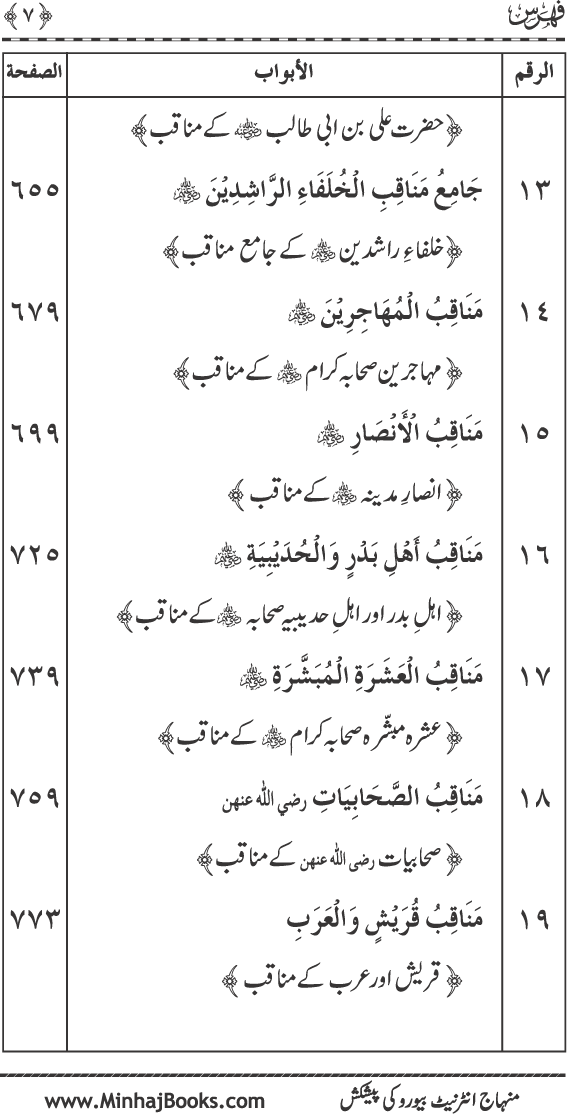 فهرس ﴿٧﴾
الرقم الأبواب الصفحة
﴿حضرت علی بن ابی طالب رضی الله عنه کے مناقب﴾
١٣ جَامِعُ مَنَاقِبِ الْخُلَفَاءِ الرَّاشِدِيْنَ رضی الله عنهم ٦٥٥
﴿خلفاءِ راشدین رضی الله عنهم کے جامع مناقب﴾
١٤ مَنَاقِبُ الْمُهَاجِرِيْنَ رضی الله عنهم ٦٧٩
﴿مہاجرین صحابہ کرام رضی الله عنهم کے مناقب﴾
١٥ مَنَاقِبُ الْأَنْصَارِ رضی الله عنهم ٦٩٩
﴿انصارِ مدینہ رضی الله عنهم کے مناقب﴾
١٦ مَنَاقِبُ أَهْلِ بَدْرٍ وَالْحُدَيْبِيَةِ رضی الله عنهم ٧٢٥
﴿اہلِ بدر اور اہلِ حدیبیہ صحابہ رضی الله عنهم کے مناقب﴾
١٧ مَنَاقِبُ الْعَشَرَةِ الْمُبَشَّرَةِ رضی الله عنهم ٧٣٩
﴿عشرہ مبشّرہ صحابہ کرام رضی الله عنهم کے مناقب﴾
١٨ مَنَاقِبُ الصَّحَابِيَاتِ رضي الله عنهن ٧٥٩
﴿صحابیات رضی الله عنهن کے مناقب﴾
١٩ مَنَاقِبُ قُرَيْشٍ وَالْعَرَبِ ٧٧٣
﴿قریش اور عرب کے مناقب﴾
منہاج انٹرنیٹ بیورو کی پیشکش www.MinhajBooks.com